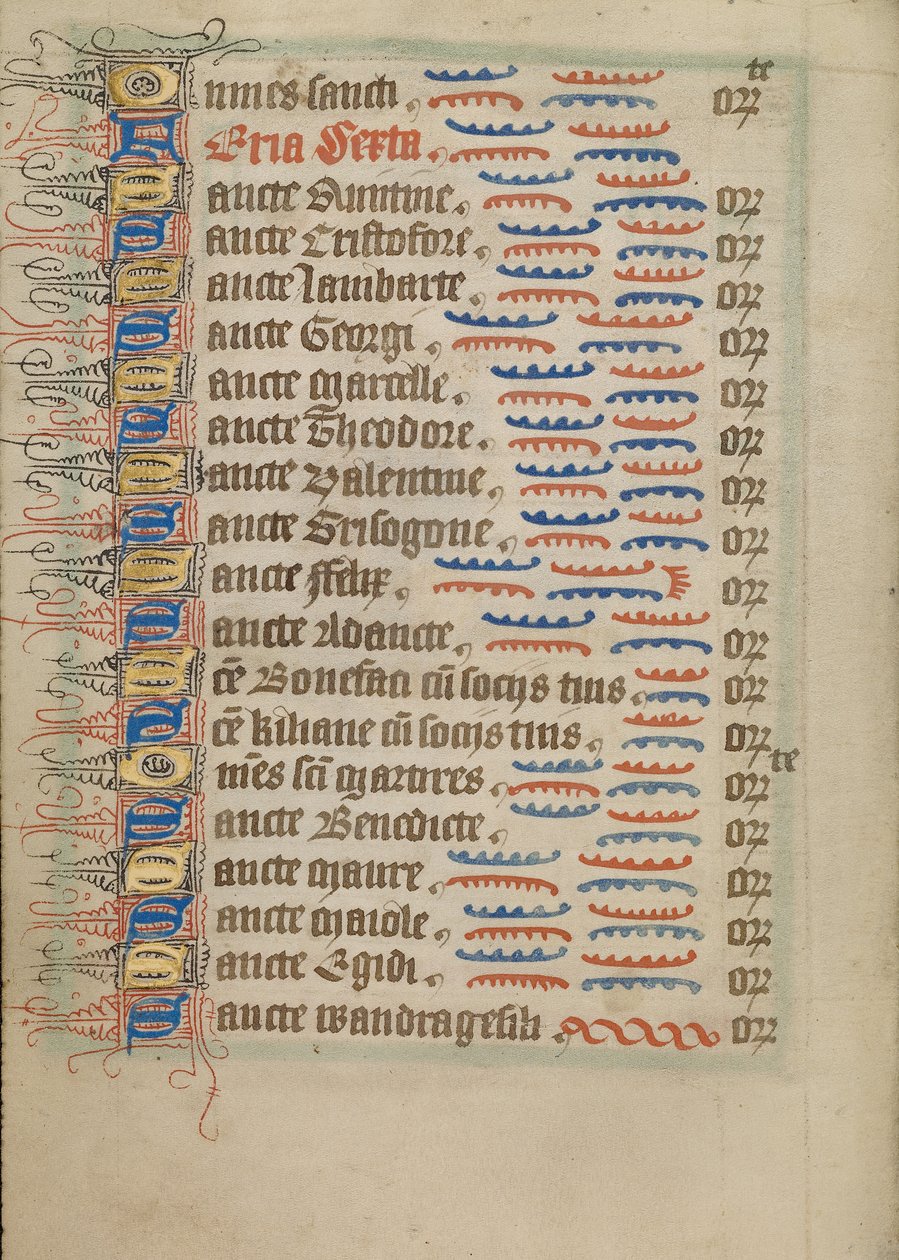 Omnes sancti, orate
Feria Sexta.
Sancte Quintine. or
Sancte Cristofore. or
Sancte lambarte. or
Sancte Georgi, or
Sancte Marcelle. or
Sancte Theodore. or
Sancte Valentine, or
Sancte Grisogone, or
Sancte ffelix, or
Sancte Adaucte, or
Scē Bonefaci cū socijs tuis, or
Scē kiliane cū socijs tuis, or
Om̄es scī Martires, orte
Sancte Benedicte, or
Sancte Maure, or
Sancte Maiole, or
Sancte Egidi, or
Sancte wandragesili, or